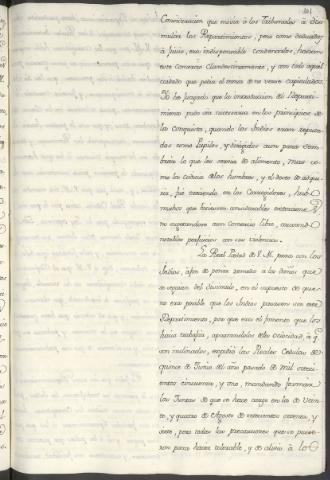 101
Consideracion que movia à los Tribunales à disi-
mular los Repartimientos, pero como deducidos
à Juicio, era indispensable contenerlos, hacian
este Comercio Clandestinamente, y con todo aquel
cuidado que pedia el temor de no verse capitulados.
Yo he juzgado que la introduccion del Reparti-
miento pudo ser necesaria en los principios de
la Conquista, quando los Indios eran reputa-
dos como Pupilos, y dirigidos aun para sem-
brar lo que les servia de alimento, mas co-
mo la codicia de los hombres, y el deseo de adqui-
rir, fue creciendo en los Corregidores, hubo
muchos que hicieron considerables extorsiones,
no sugetandose aun Comercio libre, causando
notables perjuicios con sus violencias.
La Real Piedad de V. M. para con los
Indios, à fin de poner remedio à los daños que
se seguian del disimulo, en el supuesto de que
no era posible que los Indios pasasen sin este
Repartimiento, por que era el fomento que los
hacia trabajar, apartandolos de la ociosidad, à q.
son inclinados, expidió las Reales Cedulas de
quince de Junio del año pasado de mil setec-
ientos cincuenta, y uno, mandando formar
las Juntas de que se hace cargo en la de Vein-
te, y quatro de Agosto de setecientos ochenta, y
seis, para todas las precauciones que se pusie-
ron para hacer tolerable, y de alivio à los